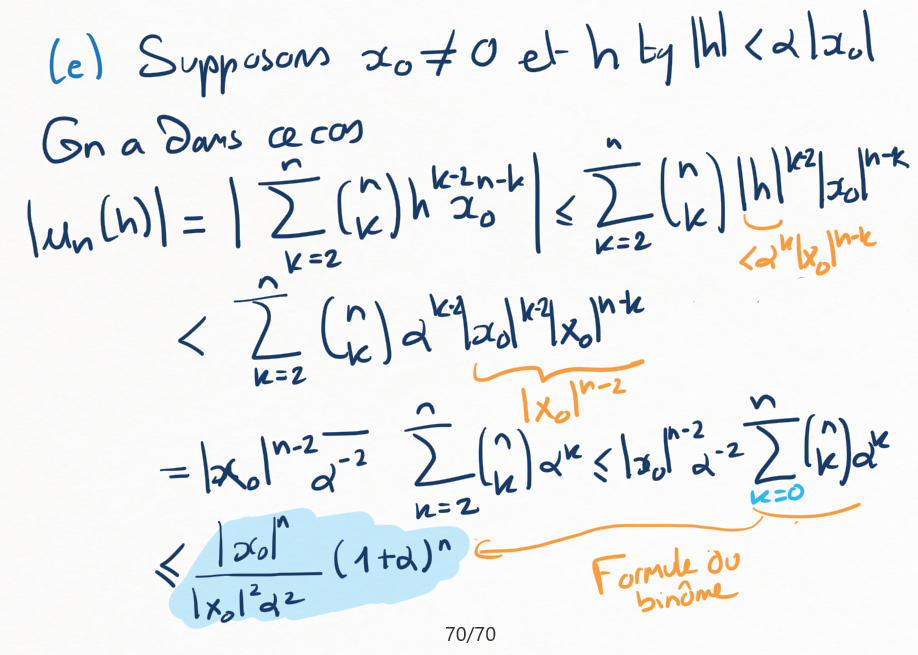 (e) Supposons x₀ ≠ 0 et h tq |h| < α|x₀|
On a dans ce cas
|uₙ(h)| = |∑_{k=2}^{n} (n k) h^{k-2} x₀^{n-k}| ≤ ∑_{k=2}^{n} (n k) |h|^{k-2} |x₀|^{n-k}
<α^k |x₀|^{n-k}
< ∑_{k=2}^{n} (n k) α^{k-2} |x₀|^{k-2} |x₀|^{n-k}
|x₀|^{n-2}
= |x₀|^{n-2} α^{-2} ∑_{k=2}^{n} (n k) α^k ≤ |x₀|^{n-2} α^{-2} ∑_{k=0}^{n} (n k) α^k
≤ |x₀|^n / |x₀|² α² (1+α)^n
Formule du
binôme
70/70